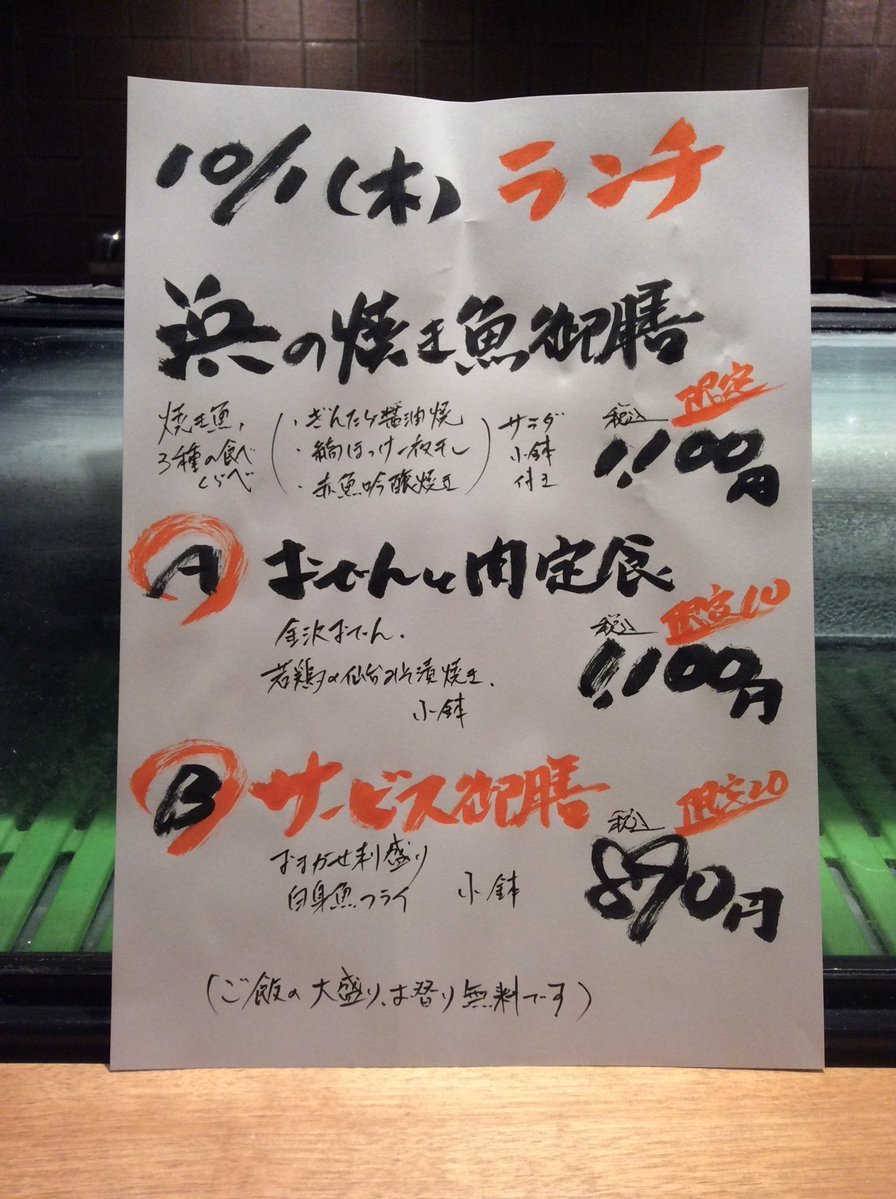 10/1(木) ランチ
浜の焼き魚御膳
限定
焼き魚、
3種の食べ
くらべ
・ぎんだら醤油焼
・縞ほっけ一枚干し
・赤魚吟醸焼き
サラダ
小鉢
付き
税込
1,100円
A おでんと肉定食
限定10
金沢おでん、
若鶏の仙台みそ漬焼き、
小鉢
税込
1,100円
B サービス御膳
限定20
おまかせ刺盛り
白身魚フライ 小鉢
税込
890円
(ご飯の大盛り、お替り無料です)